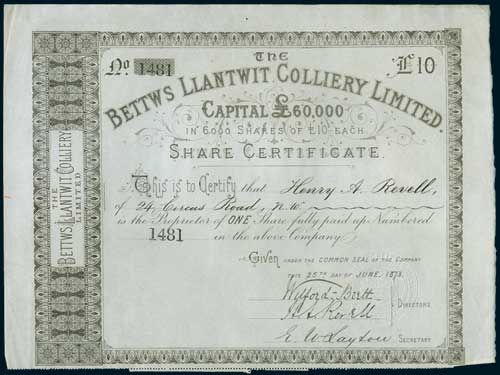 THE
BETTWS LLANTWIT COLLIERY LIMITED
No 1481
£10
THE
BETTWS LLANTWIT COLLIERY LIMITED.
CAPITAL £60,000
IN 6000 SHARES OF £10 EACH.
SHARE CERTIFICATE.
This is to Certify that Henry A. Revell,
of 24, Circus Road, N.W.
is the Proprietor of ONE Share fully paid up, Numbered
1481 in the above Company.
Given UNDER THE COMMON SEAL OF THE COMPANY
THIS 25TH DAY OF JUNE, 1873.
Revell
DIRECTORS
E. W. Layton SECRETARY